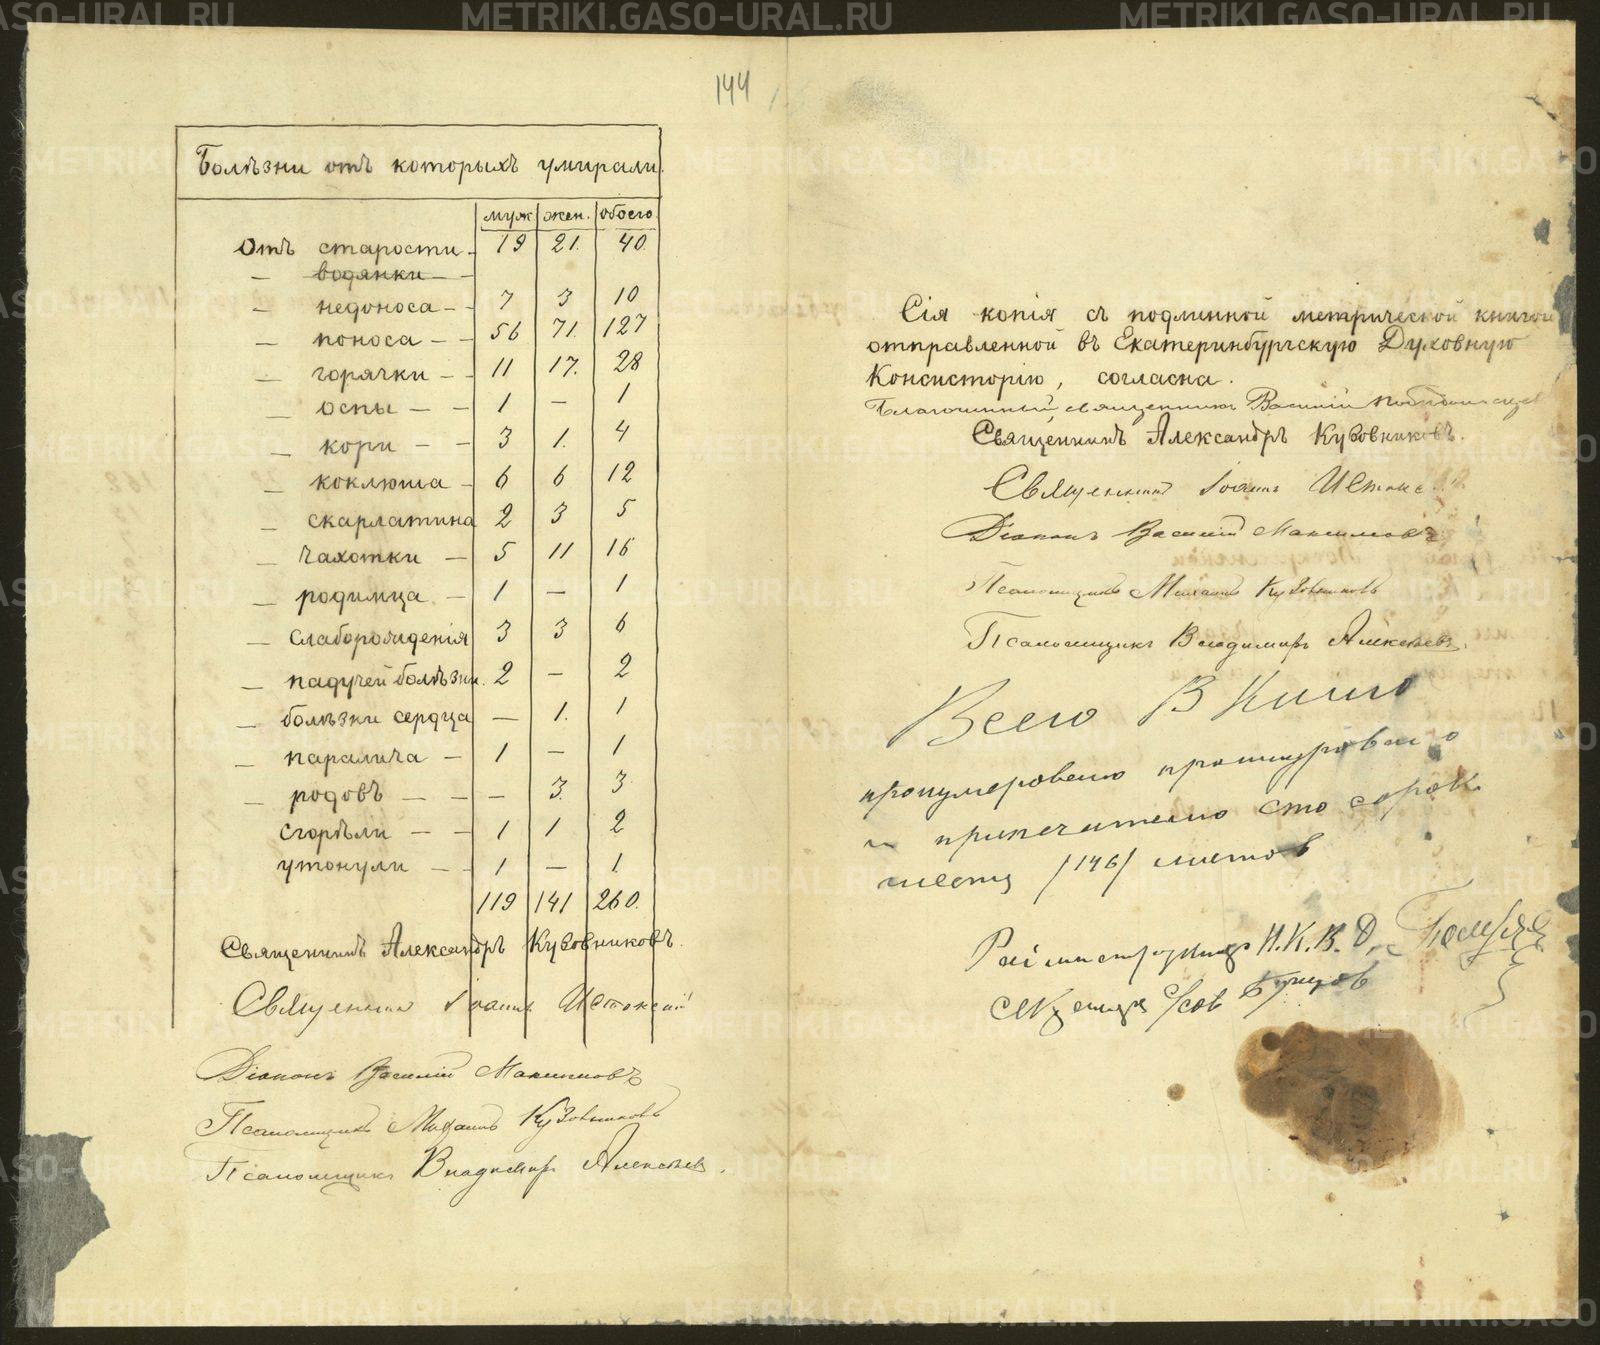 144
Болѣзни отъ которыхъ умирали.
муж жен. обоего.
Отъ старости - 19 21. 40.
— водянки — —
— недоноса — — 7 3 10
— поноса — — 56 71. 127
— горячки — — 11 17. 28
— оспы — — 1 — 1
— кори — — 3 1. 4
— коклюша - 6 6 12
— скарлатина 2 3 5
— чахотки — 5 11 16
— родимца — 1 — 1
— слаборожденія 3 3 6
— падучей болѣзни. 2 — 2
— болѣзни сердца — 1. 1
— паралича — 1 — 1
— родовъ — — — 3. 3
сгорѣли — — 1 1 2
утонули — — 1 — 1
119 141 260.
Священникъ Александръ Кузовниковъ.
Священникъ Іоаннъ
Діаконъ Василій Максимовъ
Псаломщикъ Михаилъ Кузовниковъ
Псаломщикъ Владимиръ Алексѣевъ.
Сія копія съ подлинной метрической книгой
отправленной въ Екатеринбургскую Духовную
Консисторію, согласна.
Благочинный священникъ Василій
Священникъ Александръ Кузовниковъ.
Священникъ Іоаннъ
Діаконъ Василій Максимовъ
Псаломщикъ Михаилъ Кузовниковъ
Псаломщикъ Владимиръ Алексѣевъ.
Всего В Книге
пронумеровано прошнуровано
и припечатано сто сорок
шесть /146/ листов
Н.К.В.Д.
METRIKI.GASO-URAL.RU